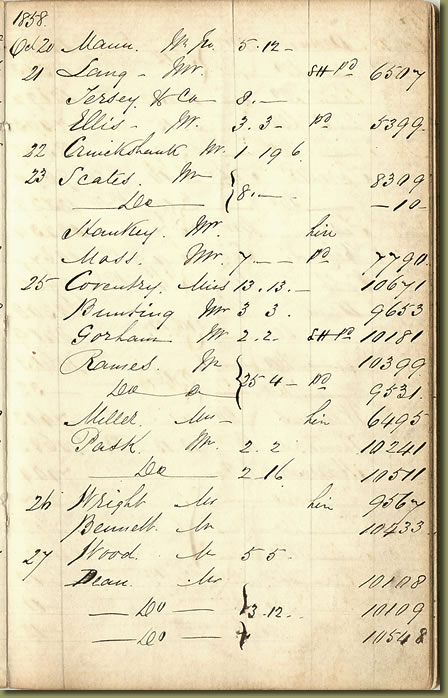 1858.
Oct 20 Mann. Mr Jn. 5. 12 -
21 Lang - Mr. SH pd 6507
Jersey & Co 8. -
Ellis - Mr. 3. 3 - pd 5399.
22 Cruickshank Mr. 1 19 6
23 Scates Mr 8309
Do } 8. - - 10 -
Stankey. Mr hire
Moss. Mr. 7 - - pd 7790.
25 Coventry. Miss 13. 13. - 10671
Bunting Mr 3 3. 9653
Gorham Mr 2. 2. SH pd 10181
Rames. Mr 10399
Do } 25 4 - pd 9531.
Miller. Mrs - hire 6495
Pask. Mr. 2. 2 10241
Do 2. 16 10511
26 Wright Mrs hire 9567
Bennett. Mr 10433
27 Wood. Mr 5 5 -
Dean. Mrs 10108
Do } 13. 12. - 10109
Do 10548